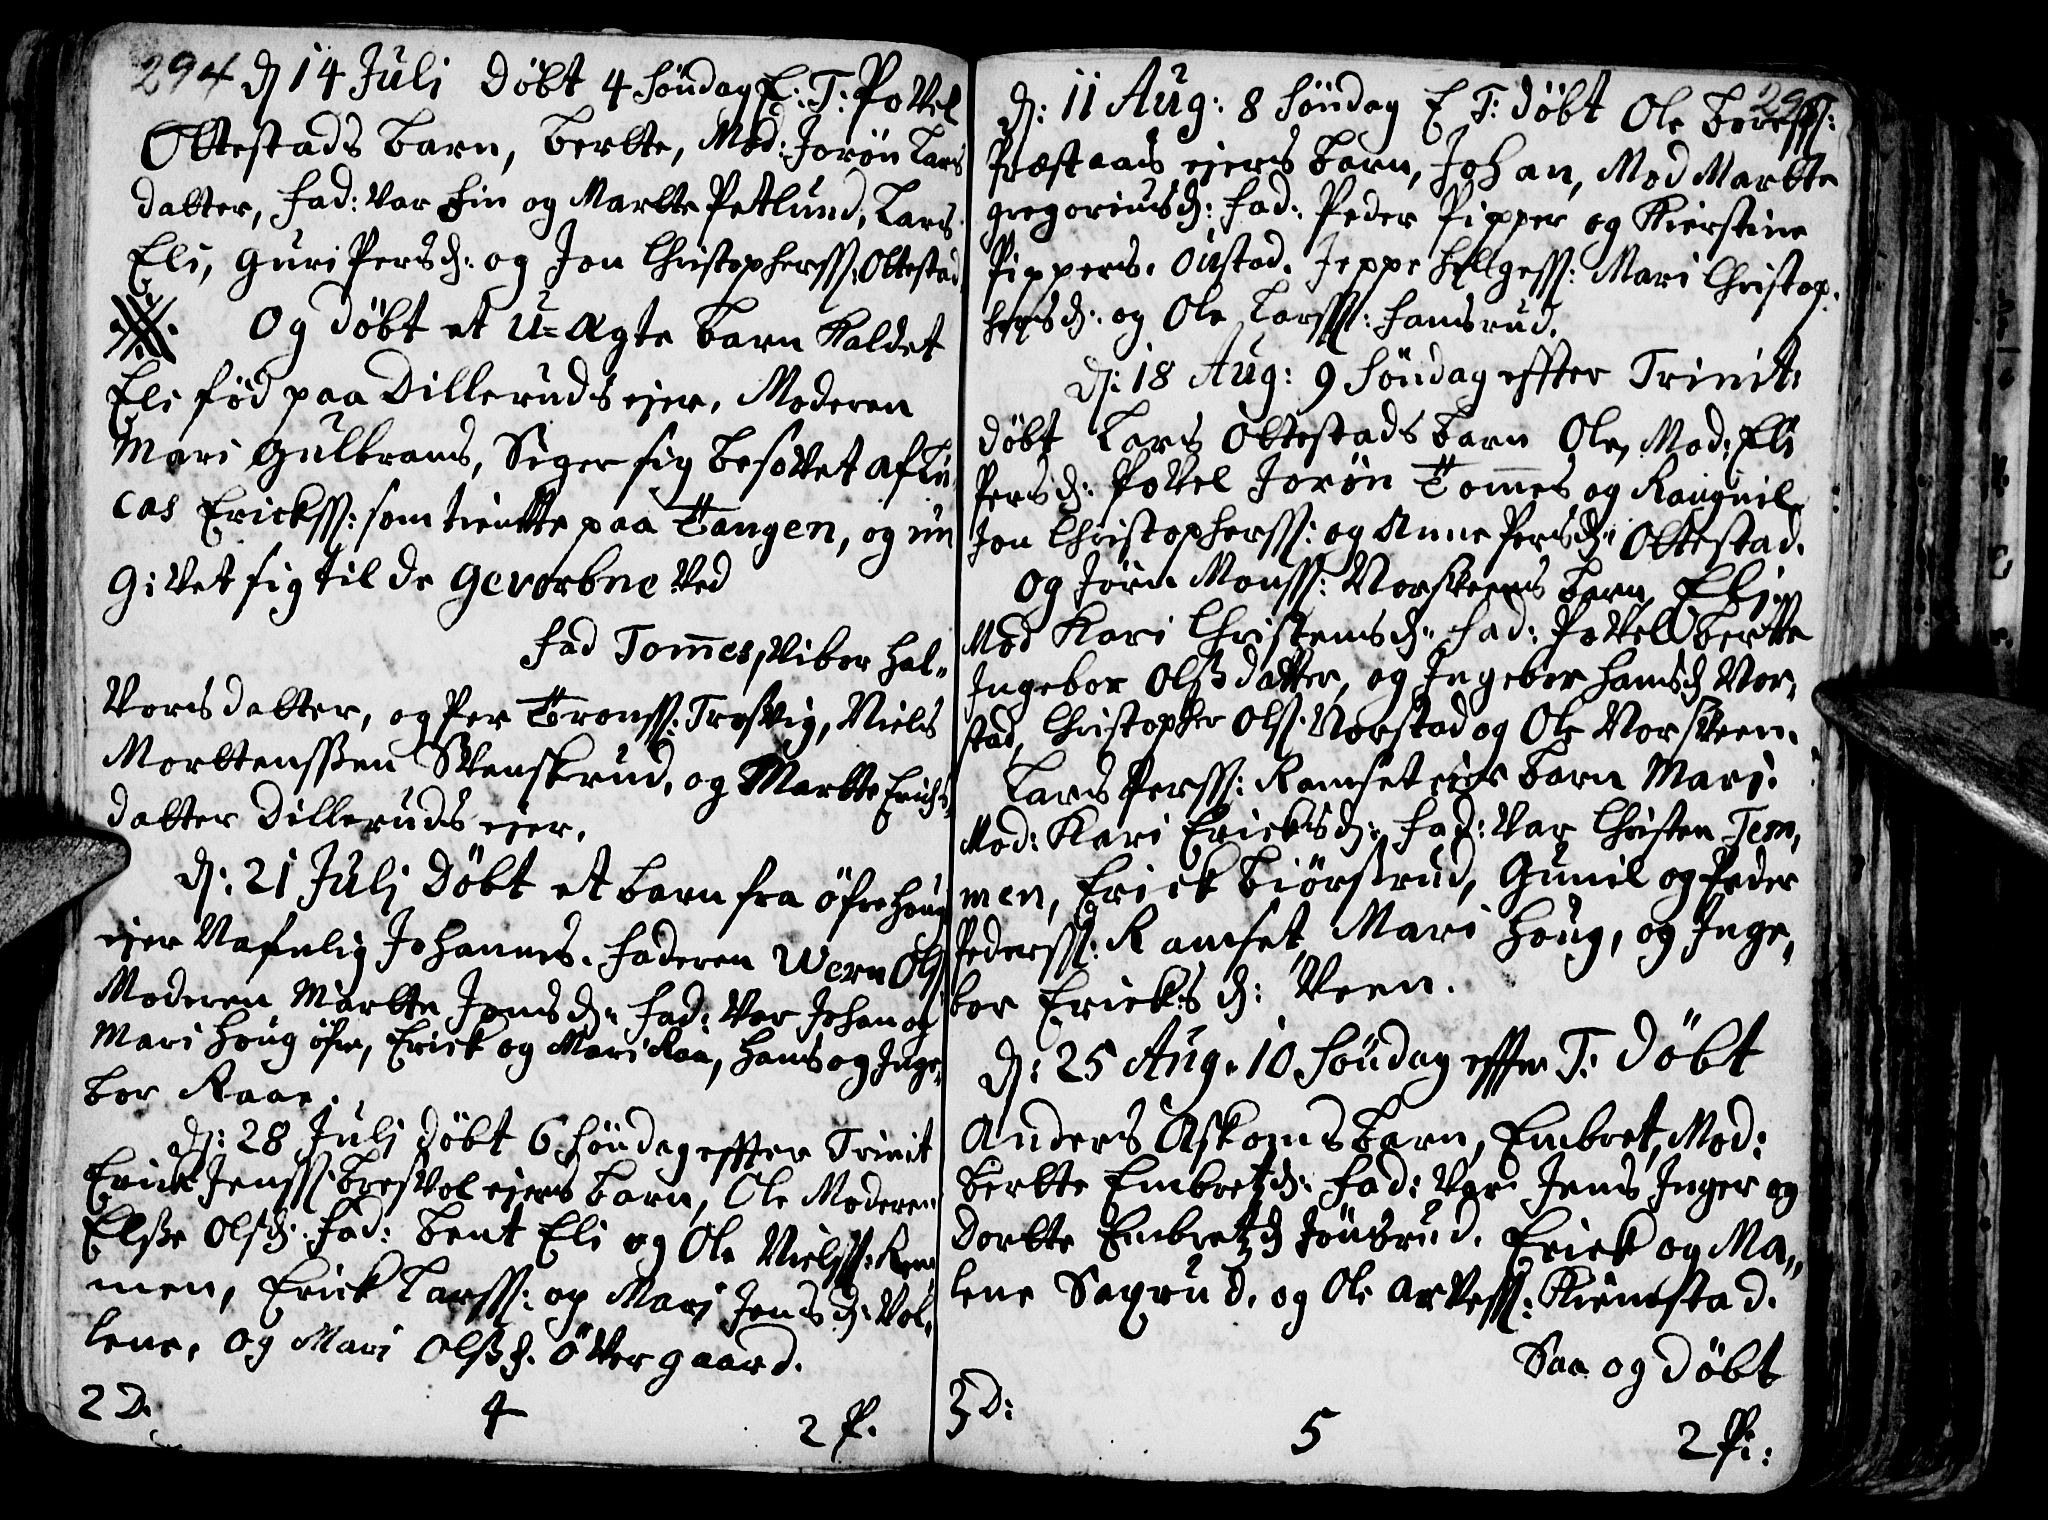 294 d 14 Juli Döbt 4 Söndag E: T: Povel
Ottestads barn, bertte, Mod: Jorön Lars
datter, fad: var Fin og Martte Petlund, Lars
Eli, Guri Persd: og Jon Christophersß: Ottestad
Og döbt et U=ægte barn kaldet
Eli föd paa Dilleruds ejer, Moderen
Mari Gulbrans, Siger sig besovet af Lu
cas Ericksß: som tientte paa Tangen, og un
Givet sig til de Gevorbne ved
fad Tom̄es, Vibor Hal„
Vorsdatter, og Per Tronsß: Trosvig, Niels
Morttensßen Svenskrud, og Martte Erichs
datter Dilleruds ejer.
D: 21 Julj Döbt et barn fra öfre Houg
ejer Nafnlig Johannes. faderen Wern Olß
Moderen Martte Jonsd: fad: var Johan og
Mari Houg öfre, Erick og Mari Raa, Hans og Inge„
bor Raae.
D: 28 Julj döbt 6 Söndag effter Trinit
Erick Jensß: Bresvol ejers barn, Ole Moderen
Elsße Olsd: fad: Bent Eli og Ole Nielsß: Rem
men, Erick Larsß: og Marj Jensd: Vol„
lene, og Mari Olsßd. Övergaard.
2 D. 4 2 P.
D: 11 Aug: 8 Söndag E T: döbt Ole
Præstaas ejers barn, Johan, Mod Martte
gregoriusd: fad: Peder Pipper og Kierstine
Pippers. Oustad. Jeppe Helgesß: Mari Christop„
hersd: og Ole Larsß: Famsrud.
D: 18 Aug: 9 Söndag effter Trinit:
döbt Lars Ottestads barn Ole, Mod: Eli
Persd: Povel Jorön Tom̄es og Raugnil
Jon Christophersß: og Anne Persd: Ottestad.
Og Jörn Monsß: Norsveens barn, Eli,
Mod Kari Christensd: fad: Povel Bertte
Ingebor Olßdatter, og Ingebor Hansd Nor„
stad, Christopher Olß: Norstad og Ole Norsveen.
Lars Persß: Ramset ejer barn Mari.
Mod: Kari Ericksd: fad: var Christen Tem,
men, Erick Biörsrud, Gunil og Peder
Pedersß: Ramset, Mari Houg, og Inge„
bor Ericksd: Veen.
D: 25 Aug. 10 Söndag effter T: döbt
Anders Askoms barn, Embret, Mod:
bertte Embretzd: fad: var Jens Inger og
Dortte Embretzd Jönsrud. Erick og Ma„
lene Saxrud. og Ole Arvesß: Kiemstad.
Saa og döbt
3 D: 5 2 P: